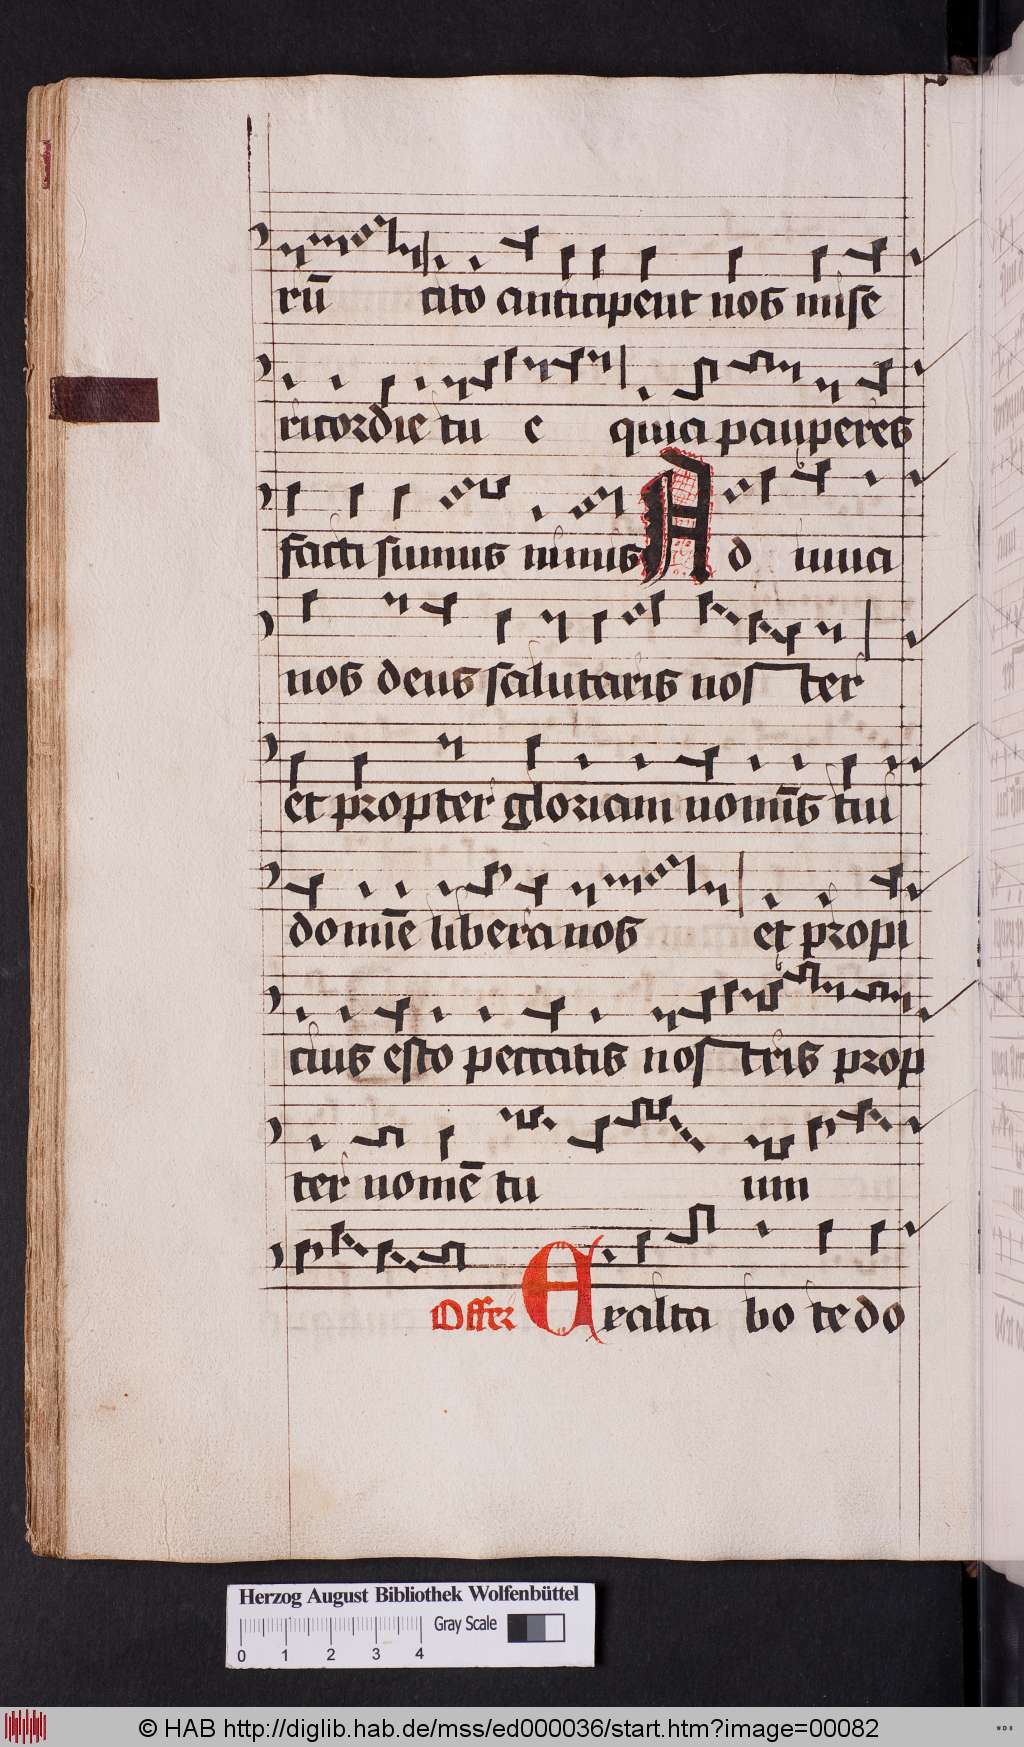 rū cito anticipent nos mise
ricordie tu e quia pauperes
facti sumus nimis Ad iuua
nos deus salutaris nos ter
et propter gloriam nomīs tui
domīe libera nos et propi
cius esto peccatis nos tris prop
ter nomē tu um
Offer Exalta bo te do
Herzog August Bibliothek Wolfenbüttel
Gray Scale
0 1 2 3 4
© HAB http://diglib.hab.de/mss/ed000036/start.htm?image=00082